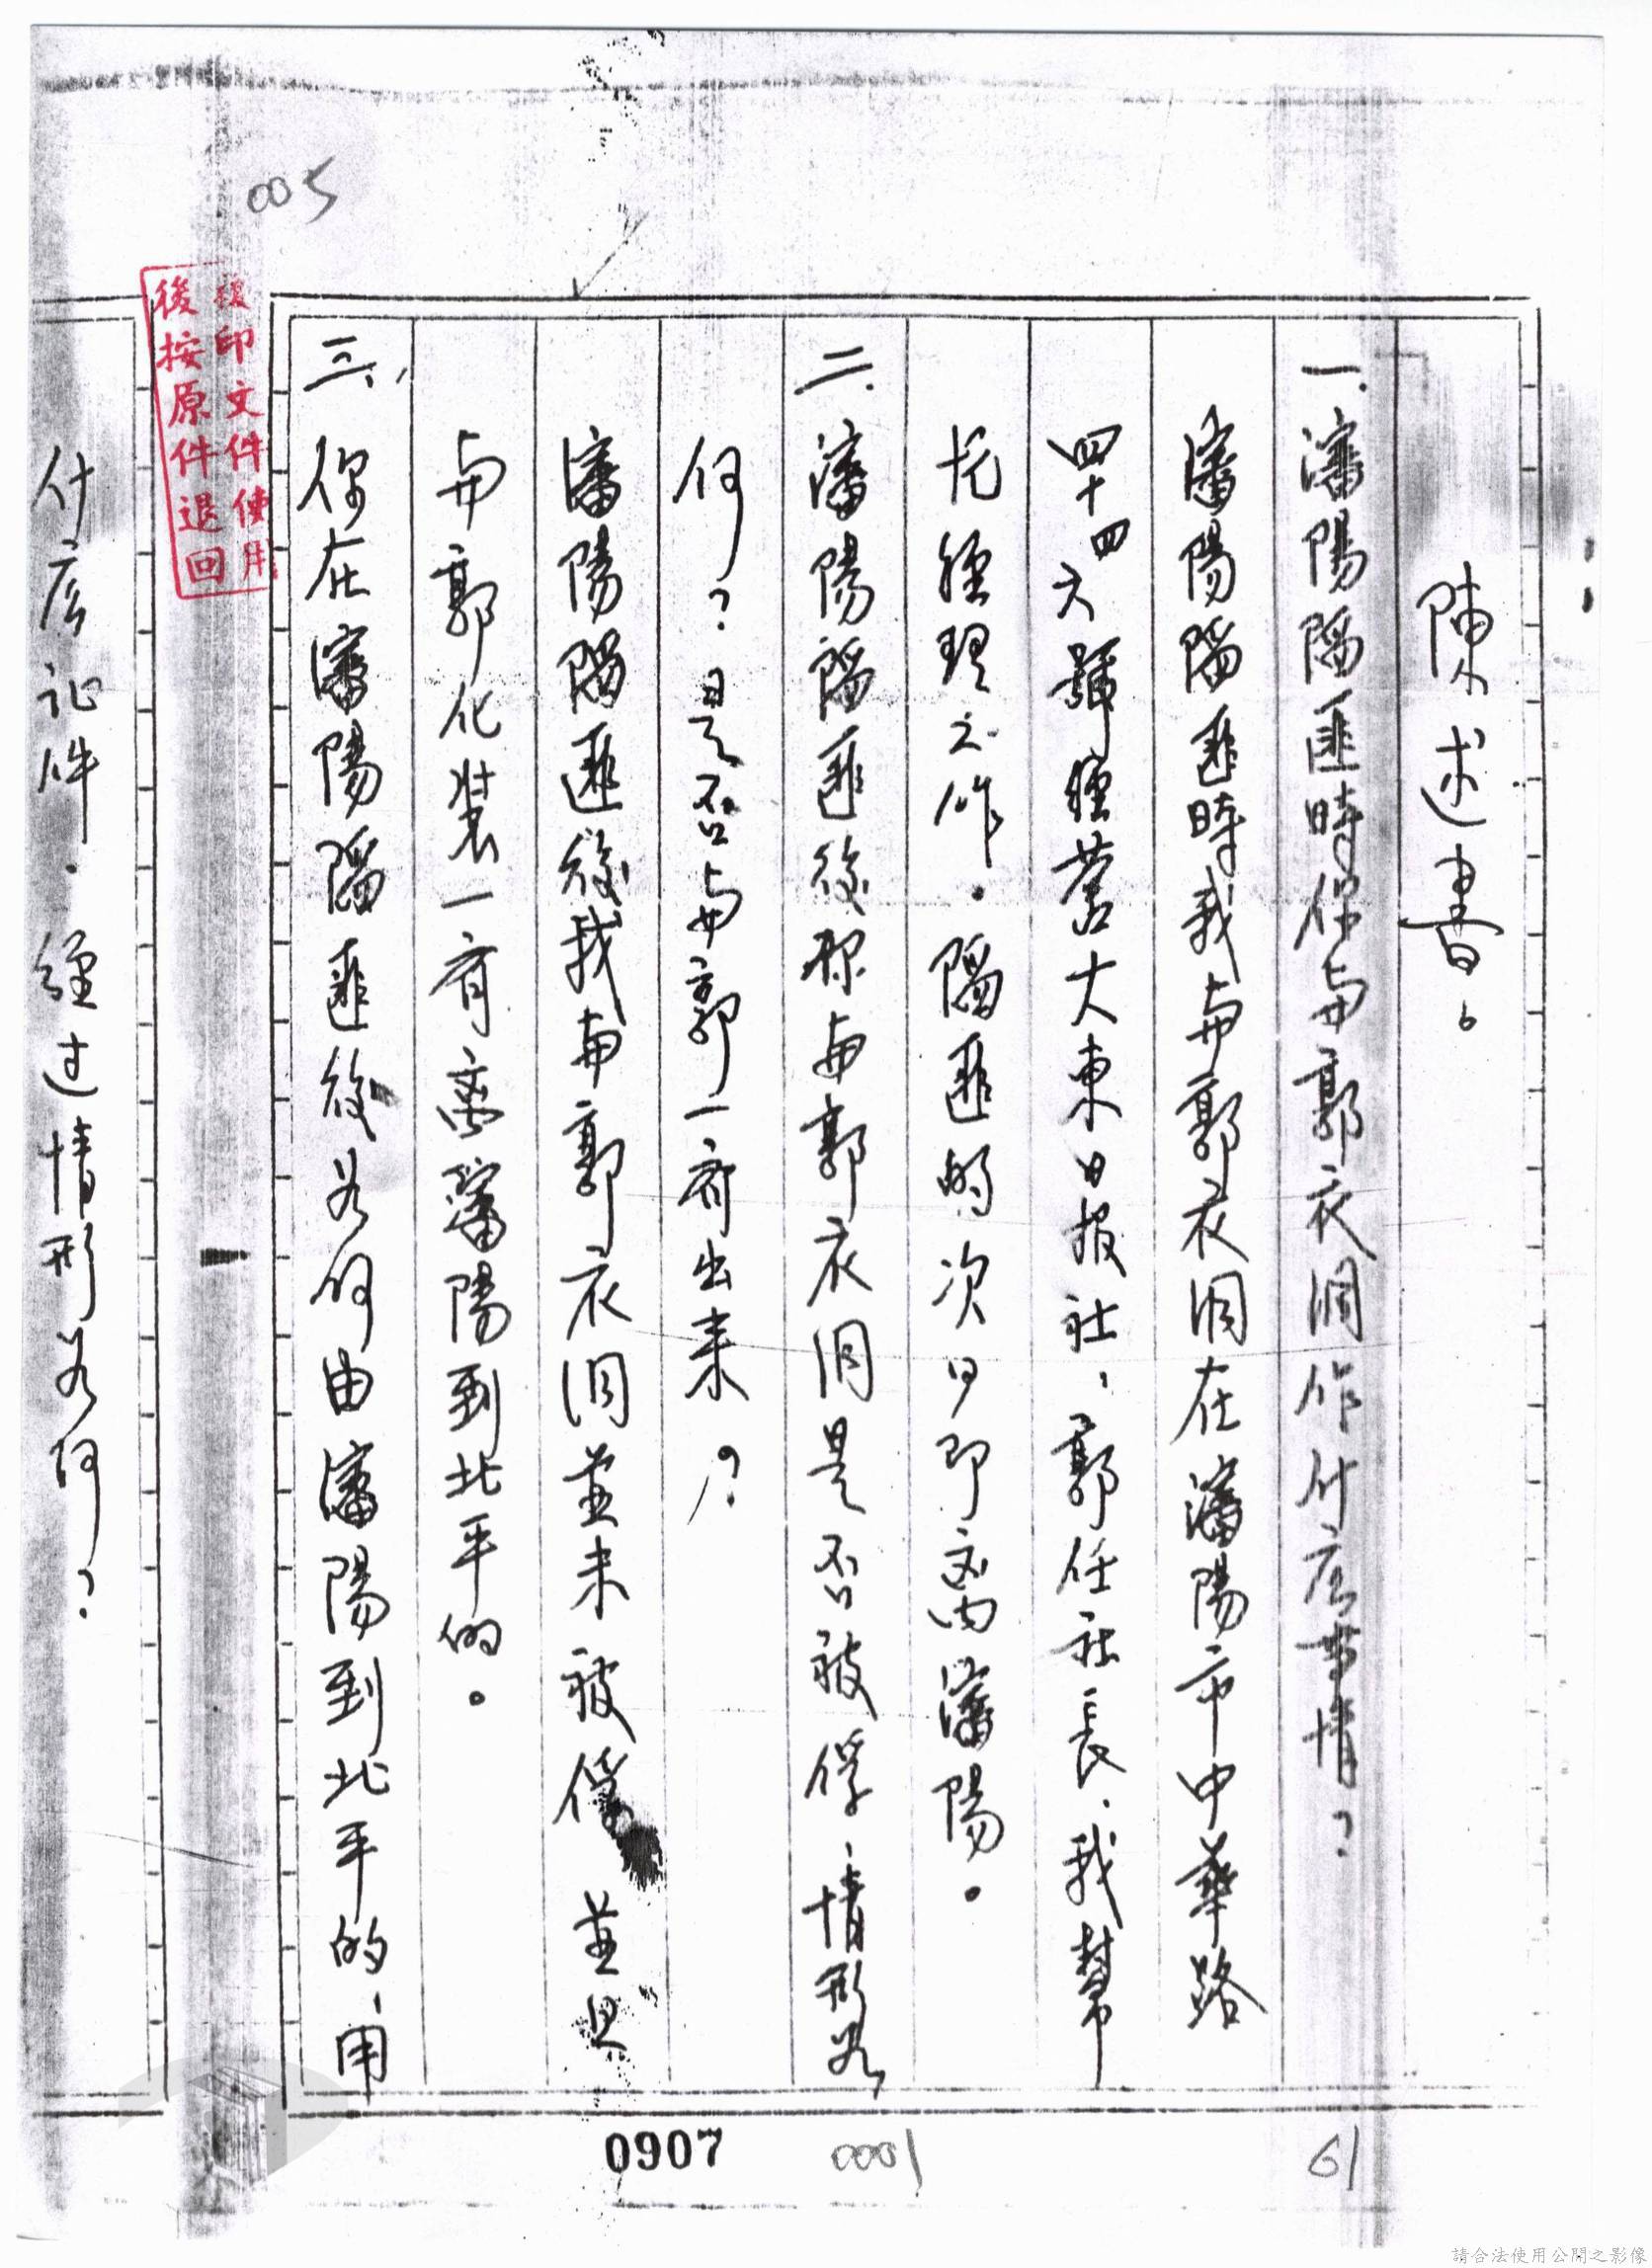 陳述書。
一、瀋陽陷匪時你与郭衣洞作什么事情？
瀋陽陷匪時我与郭衣洞在瀋陽市中華路
四十四六號經营大東日报社，郭任社長，我幫
忙經理工作。陷匪的次日即离瀋陽。
二、瀋陽陷匪後你与郭衣洞是否被俘，情形若
何？是否与郭一齐出来？
瀋陽陷匪後我与郭衣洞並未被俘 並且
与郭化装一齐离瀋陽到北平的。
三、你在瀋陽陷匪後若何由瀋陽到北平的，用
什么证件。經过情形若何？
複印文件使用
後按原件退回
005
0907
0001
61
請合法使用公開之影像